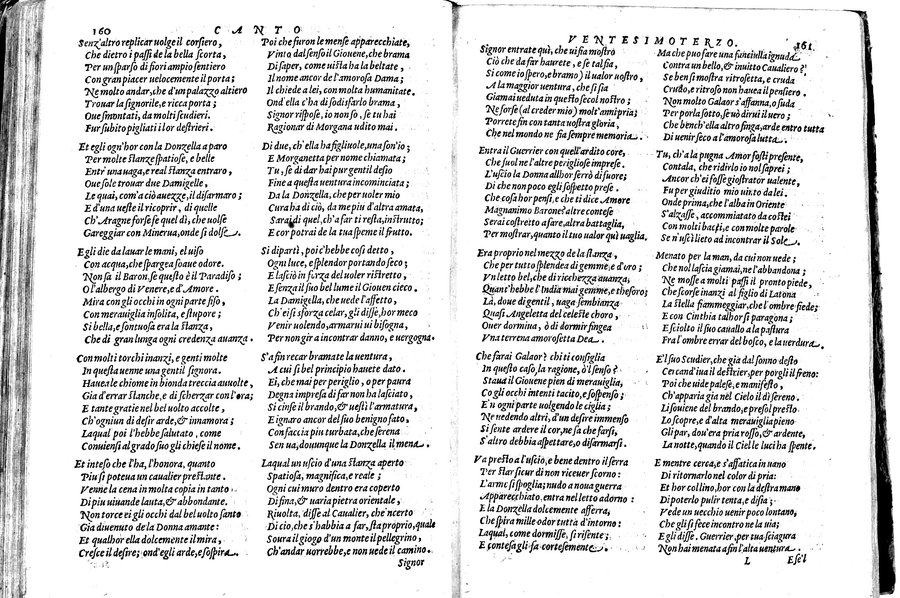 160 CANTO
Senz'altro replicar uolge il corsiero,
Che dietro i passi de la bella scorta,
Per un sparso di fiori ampio sentiero
Con gran piacer uelocemente il porta;
Ne molto andar, che d'un palazzo altiero
Trouar la signorile, e ricca porta;
Oue smontati, da molti scudieri.
Fur subito pigliati i lor destrieri.
Et egli ogn'hor con la Donzella a paro
Per molte stanze spatiose, e belle
Entr'una uaga, e real stanza entraro,
Oue sole trouar due Damigelle,
Le quai, com'a ciò auezze, il disarmaro;
E d'una ueste il ricoprir, di quelle
Ch'Aragne forse fe quel dì, che uolse
Gareggiar con Minerua, onde si dolse.
Egli die da lauar le mani, el uiso
Con acqua, che sparge a soaue odore.
Non sa il Baron, se questo è il Paradiso;
O l'albergo di Venere, e d'Amore.
Mira con gli occhi in ogni parte fiso,
Con merauiglia insolita, e stupore;
Si bella, e sontuosa era la stanza,
Che di gran lunga ogni credenza auanza.
Con molti torchi inanzi, e genti molte
In questa uenne una gentil signora.
Hauea le chiome in bionda treccia auuolte,
Gia d'errar stanche, e di scherzar con l'ora;
E tante gratie nel bel uolto accolte,
Ch'ogniun di desir arde, & innamora;
Laqual poi l'hebbe salutato, come
Conuiensi al grado suo gli chiese il nome.
Et inteso che l'ha, l'honora, quanto
Piu si poteua un caualier prestante.
Venne la cena in molta copia in tanto
Di piu uiuande lauta, & abbondante,
Non torce ei gli occhi dal bel uolto santo
Gia diuenuto de la Donna amante:
Et qualhor ella dolcemente il mira,
Cresce il desire; ond'egli arde, e sospira.
Poi che furon le mense apparecchiate,
Vinto dal senso il Giouene, che brama
Di saper, come uisti ha la beltate,
Il nome ancor de l'amorosa Dama;
Il chiede a lei, con molta humanitate.
Ond'ella c'ha di sodisfarlo brama,
Signor rispose, io non so, se tu hai
Ragionar di Morgana udito mai.
Di due, ch'ella ha figliuole, una son'io;
E Morganetta per nome chiamata;
Tu, se di dar hai pur gentil desio
Fine a questa uentura incominciata;
Da la Donzella, che per uoler mio
Cura ha di ciò, da me piu d'altra amata,
Sarai di quel, ch'a far ti resta, instrutto;
E cor potrai de la tua speme il frutto.
Si dipartì, poi c'hebbe cosi detto,
Ogni luce, e splendor portando seco;
E lasciò in forza del uoler ristretto,
E senza il suo bel lume il Giouen cieco.
La Damigella, che uede l'affetto,
Ch'ei si sforza celar, gli disse, hor meco
Venir uolendo, armarui ui bisogna,
Per non gir a incontrar danno, e uergogna.
S'a fin recar bramate la uentura,
A cui si bel principio hauete dato.
Ei, che mai per periglio, o per paura
Degna impresa di far non ha lasciato,
Si cinse il brando, & uestì l'armatura,
E ignaro ancor del suo benigno fato,
Con faccia piu che pria turbata, che serena
Sen ua, dounque la Donzella il mena.
Laqual un uscio d'una stanza aperto
Spatiosa, magnifica, e reale;
Ogni cui muro dentro era coperto
Di fina, & uaria pietra orientale,
Riuolta, disse al Caualier, che'ncerto
Di cio, che s'habbia a far, sta proprio, quale
Soura il giogo d'un monte il pellegrino,
Ch'andar uorrebbe, e non uede il camino.
Signor
VENTESIMOTERZO. 161
Signor entrate quì, che ui sia mostro
Ciò che da far haurete, e se tal sia,
Si come io spero, e bramo) il ualor uostro,
A la maggior uentura, che si sia
Giamai ueduta in questo secol nostro;
Ne forse (al creder mio) molt'anni pria;
Porrete fin con tanta uostra gloria,
Che nel mondo ne sia sempre memoria.
Entra il Guerrier con quell'ardito core,
Che suol ne l'altre perigliose imprese.
L'uscio la Donna allhor serrò di fuore;
Di che non poco egli sospetto prese.
Che cosa hor pensi, e che ti dice Amore
Magnanimo Barone? altre contese
Serai costretto a fare, altra battaglia,
Per mostrar, quanto il tuo ualor quì uaglia.
Era proprio nel mezzo de la stanza,
Che per tutto splendea di gemme, e d'oro;
Vn letto bel, che di ricchezza auanza,
Quant'hebbe l'India mai gemme, e thesoro;
Là, doue di gentil, uaga sembianza
Quasi Angeletta del celeste choro,
Ouer dormina, ò di dormir fingea
Vna terrena amorosetta Dea.
Che farai Galaor? chi ti consiglia
In questo caso, la ragione, ò l senso?
Staua il Giouene pien di merauiglia,
Co gli occhi intenti tacito, e sospenso;
E'n ogni parte uolgendo le ciglia;
Ne uedendo altri, d'un desire immenso
Si sente ardere il cor, ne sa che farsi,
S'altro debbia aspettare, o disarmarsi.
Va presto a l'uscio, e bene dentro il serra
Per star sicur di non riceuer scorno:
L'arme si spoglia; nudo a noua guerra
Apparecchiato, entra nel letto adorno:
E la Donzella dolcemente afferra,
Che spira mille odor tutta d'intorno:
Laqual, come dormisse, si risente;
E contesa gli fa cortesemente.
Ma che puo fare una fanciulla ignuda
Contra un bello, & inuito Caualiero?
Se ben si mostra ritrosetta, e cruda
Crudo, e ritroso non hauea il pensiero.
Non molto Galaor s'affanna, o suda
Per porla sotto, se uò dirui il uero;
Che bench'ella altro finga, arde entro tutta
Di uenir seco a l'amorosa lutta.
Tu, ch'a la pugna Amor fosti presente,
Contala, che ridirlo io nol saprei;
Ancor ch'ei fosse giostrator ualente,
Fu per giuditio mio uinto da lei.
Onde prima, che l'alba in Oriente
S'alzasse, accommiatato da costei
Con molti bacci, e con molte parole
Se n'uscì lieto ad incontrar il Sole.
Menato per la man, da cui non uede;
Che nol lascia giamai, ne l'abbandona;
Ne mosse a molti passi il pronto piede,
Che scorse inanzi al figlio di Latona
La stella fiammeggiar, che l'ombre fiede;
E con Cinthia talhor si paragona;
E sciolto il suo cauallo a la pastura
Fra l'ombre errar del bosco, e la uerdura.
E'l suo Scudier, che gia dal sonno desto
Cercand'iua il destrier, per porgli il freno:
Poi che uide palese, e manifesto,
Ch'apparia gia nel Cielo il dì sereno.
Li souiene del brando, e presol presto
Lo scopre, e d'alta merauiglia pieno
Gli par, dou'era pria rosso, & ardente,
La notte, quando il Ciel le luci ha spente.
E mentre cerca, e s'affatica in uano
Di ritornarlo nel color di pria;
Et hor col lino, hor con la destra mano
Di poterlo pulir tenta, e disia;
Vede un uecchio uenir poco lontano,
Che gli si fece incontro ne la uia;
E gli disse. Guerrier, per tua sciagura
Non hai menata a fin l'alta uentura.
L Ese'l